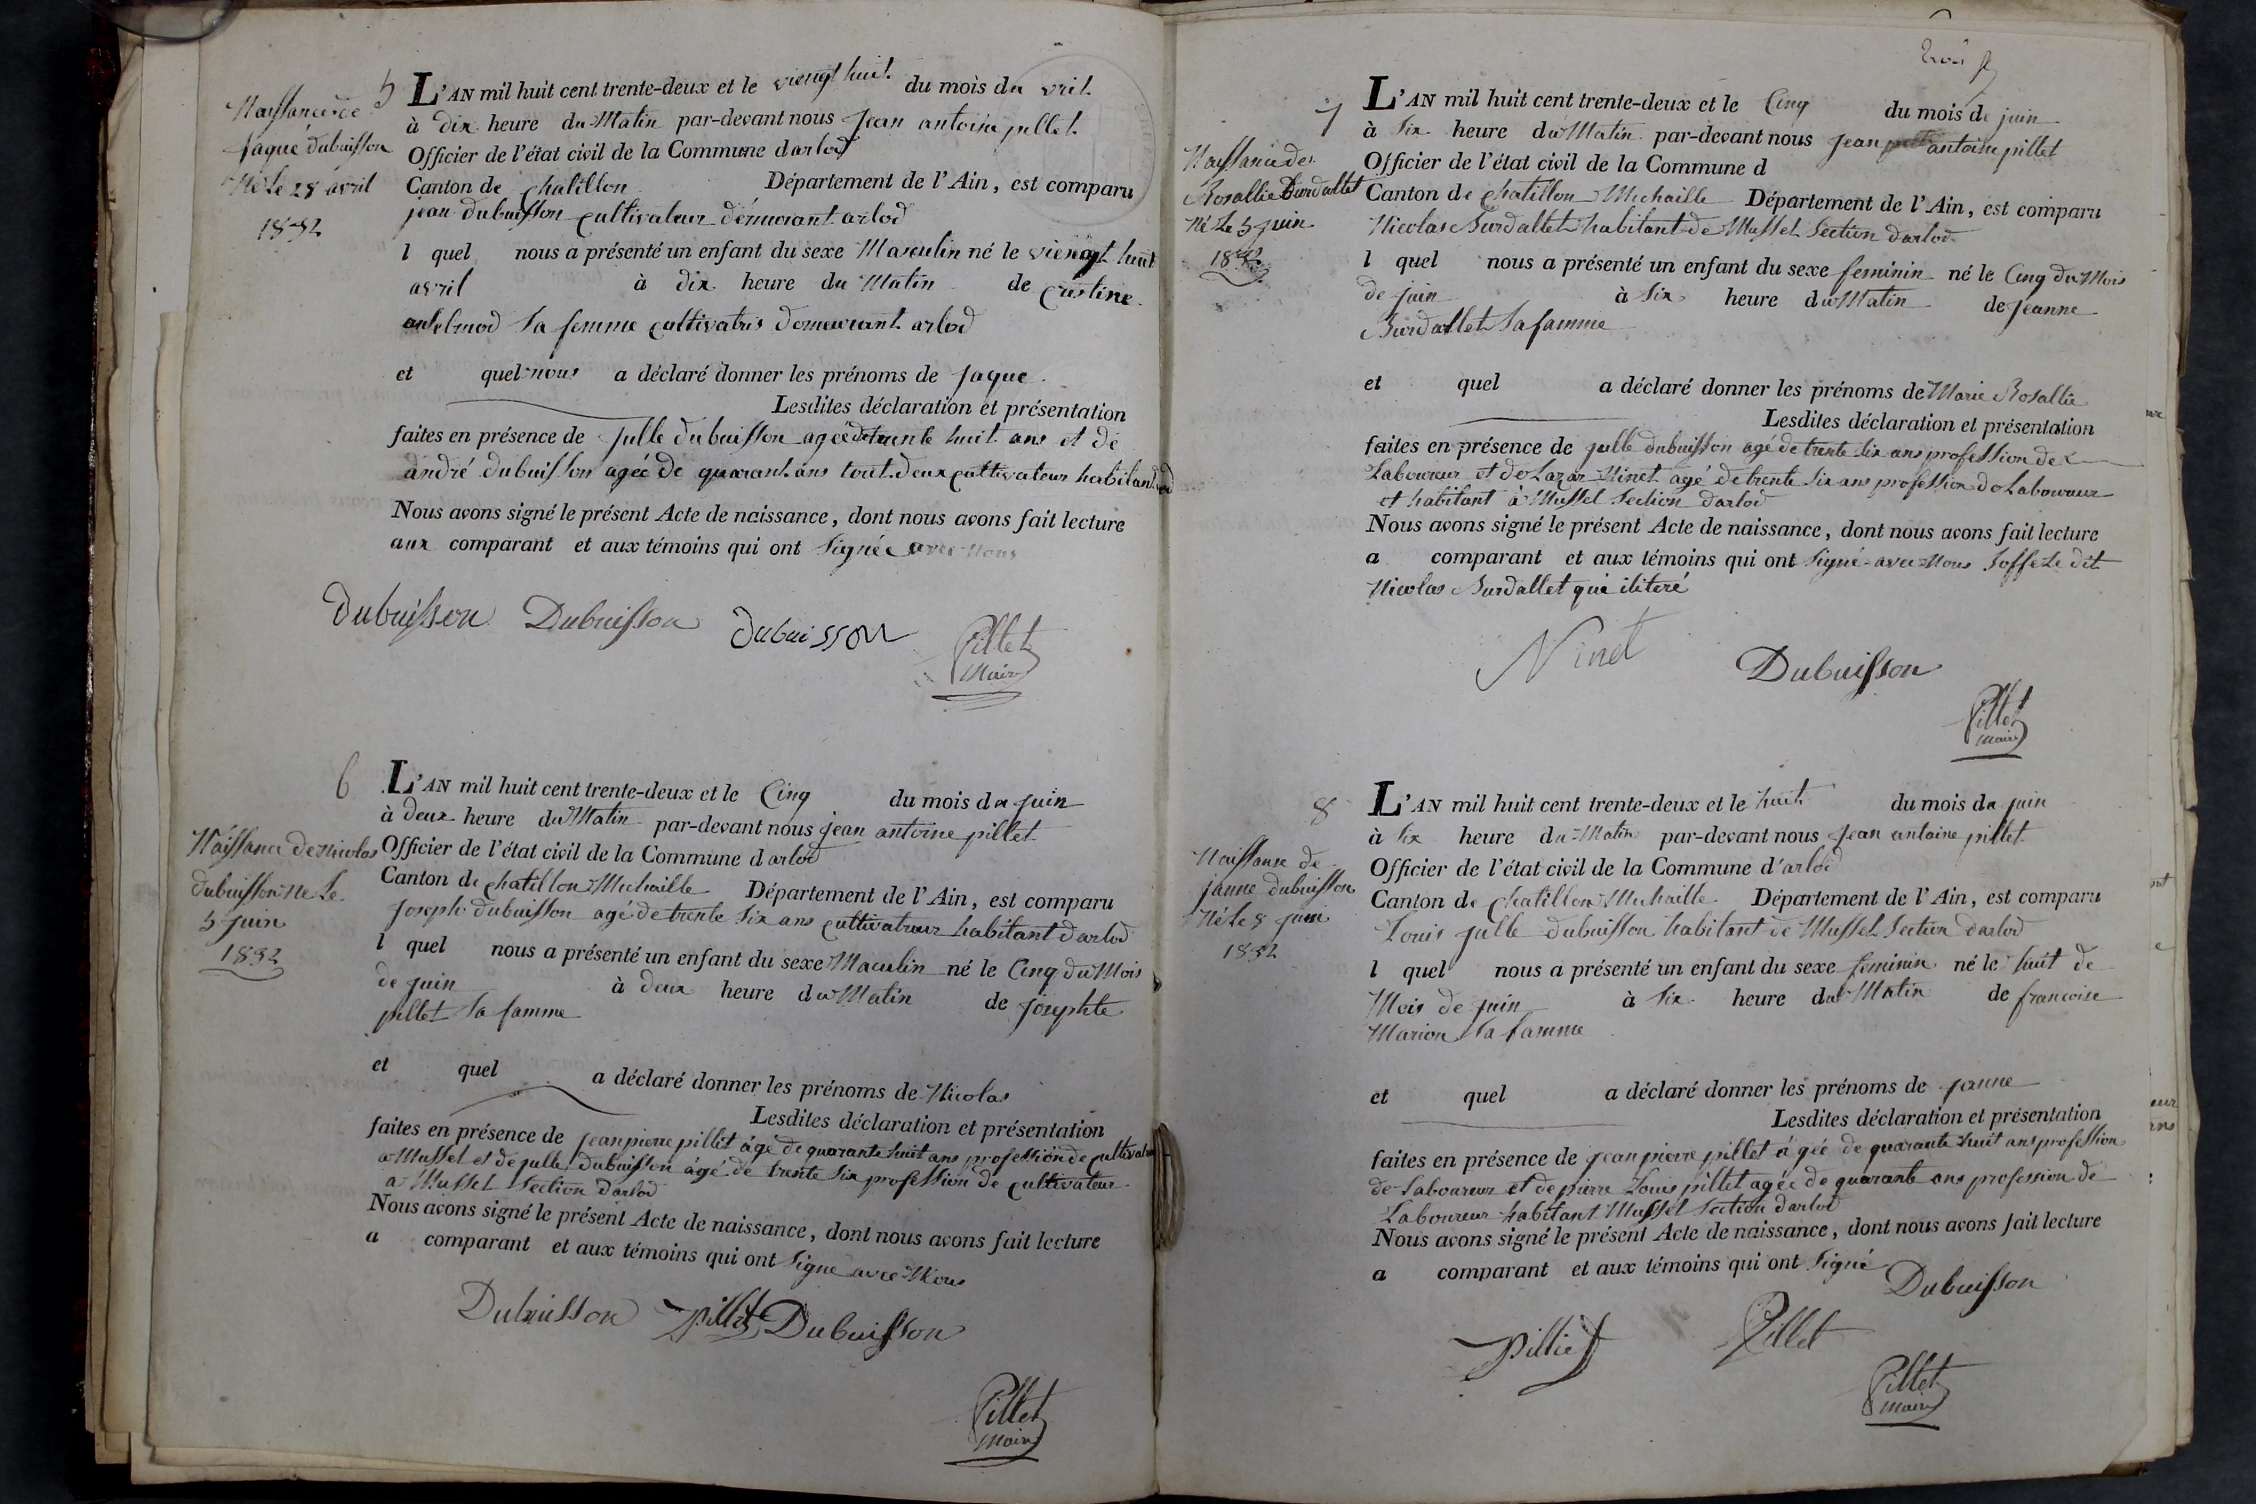 5
Naissance de
jaque dubuisson
Né Le 28 avril
1832
L'AN mil huit cent trente-deux et le viengt huit du mois da vril
à dix heure du Matin par-devant nous Jean antoine pillet
Officier de l'état civil de la Commune d arlod
Canton de Chatillon Département de l'Ain, est comparu
jean dubuisson cultivateur démeurant arlod
l quel nous a présenté un enfant du sexe Masculin né le viengt huit
avril à dix heure du Matin de cristine
anselmod sa femme cultivatris demeurant arlod
et quel nous a déclaré donner les prénoms de jaque
Lesdites déclaration et présentation
faites en présence de julle dubuisson agéé de trente huit ans et de
andré dubuisson agéé de quarant ans tout deux cultivateur habitant
Nous avons signé le présent Acte de naissance, dont nous avons fait lecture
aux comparant et aux témoins qui ont signée avec nous
Dubuisson Dubuisson dubuisson Pillet
Maire
6
Naissance de nicolas
dubuisson ne Le
5 juin
1832
L'AN mil huit cent trente-deux et le Cinq du mois de juin
à deux heure du Matin par-devant nous jean antoine pillet
Officier de l'état civil de la Commune d arlod
Canton de chatillon Michaille Département de l'Ain, est comparu
Joseph dubuisson agé de trente six ans cultivateur habitant darlod
l quel nous a présenté un enfant du sexe Maculin né le Cinq du Mois
de juin à deux heure du Matin de josephte
pillet sa famme
et quel a déclaré donner les prénoms de Nicolas
Lesdites déclaration et présentation
faites en présence de jean pierre pillet âgé de quarante huit ans profession de cultivateur
a Mussel et de julle dubuisson âgé de trente six profession de cultivateur
a Mussel section darlod
Nous avons signé le présent Acte de naissance, dont nous avons fait lecture
a comparant et aux témoins qui ont signe avec Nous
Dubuisson pillet Dubuisson
Pillet
Maire
trois
7
Naissance de
Rosallie Burdallet
Né Le 5 juin
1832
L'AN mil huit cent trente-deux et le Cinq du mois de juin
à six heure du Matin par-devant nous jean antoine pillet
Officier de l'état civil de la Commune d
Canton de chatillon Michaille Département de l'Ain, est comparu
Nicolas Burdallet habitant de Mussel Section darlod
l quel nous a présenté un enfant du sexe feminin né le Cinq du Mois
de juin à six heure du Matin de jeanne
Burdallet sa famme
et quel a déclaré donner les prénoms de Marie Rosallie
Lesdites déclaration et présentation
faites en présence de julle dubuisson agé de trente six ans profession de
Laboureur et de Lazar Ninet agé de trente six ans profession de Laboureur
et habitant à Mussel Section darlod
Nous avons signé le présent Acte de naissance, dont nous avons fait lecture
a comparant et aux témoins qui ont signé avec Nous soffe Le dit
Nicolas Burdallet qui iliteré
Ninet Dubuisson
Pillet
Maire
8
Naissance de
janne dubuisson
Né Le 8 juin
1832
L'AN mil huit cent trente-deux et le huit du mois de juin
à six heure du Matin par-devant nous jean antoine pillet
Officier de l'état civil de la Commune d'arlod
Canton de chatillon Michaille Département de l'Ain, est comparu
Louis julle dubuisson habitant de Mussel Section darlod
l quel nous a présenté un enfant du sexe feminin né le huit de
Mois de juin à six heure du Matin de francoise
Marion sa famme
et quel a déclaré donner les prénoms de janne
Lesdites déclaration et présentation
faites en présence de jean pierre pillet âgée de quarante huit ans profession
de Laboureur et de pierre Louis pillet agée de quarante ans profession de
Laboureur habitant Mussel Section darlod
Nous avons signé le présent Acte de naissance, dont nous avons fait lecture
a comparant et aux témoins qui ont signé
Dubuisson
Pilliet Pillet
Pillet
Maire